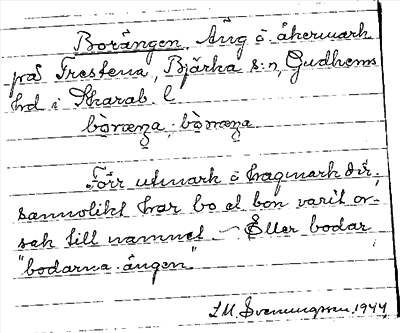 Borängen. Äng o åkermark
på Frestena, Bjärka s:n, Gudhems
hrd i Skarab. l
Förr utmark o hagmark där,
sannolikt har bo el bon varit or-
sak till namnet — Eller bodar
"bodarna-ängen"
J M. Svenungsson, 1944,